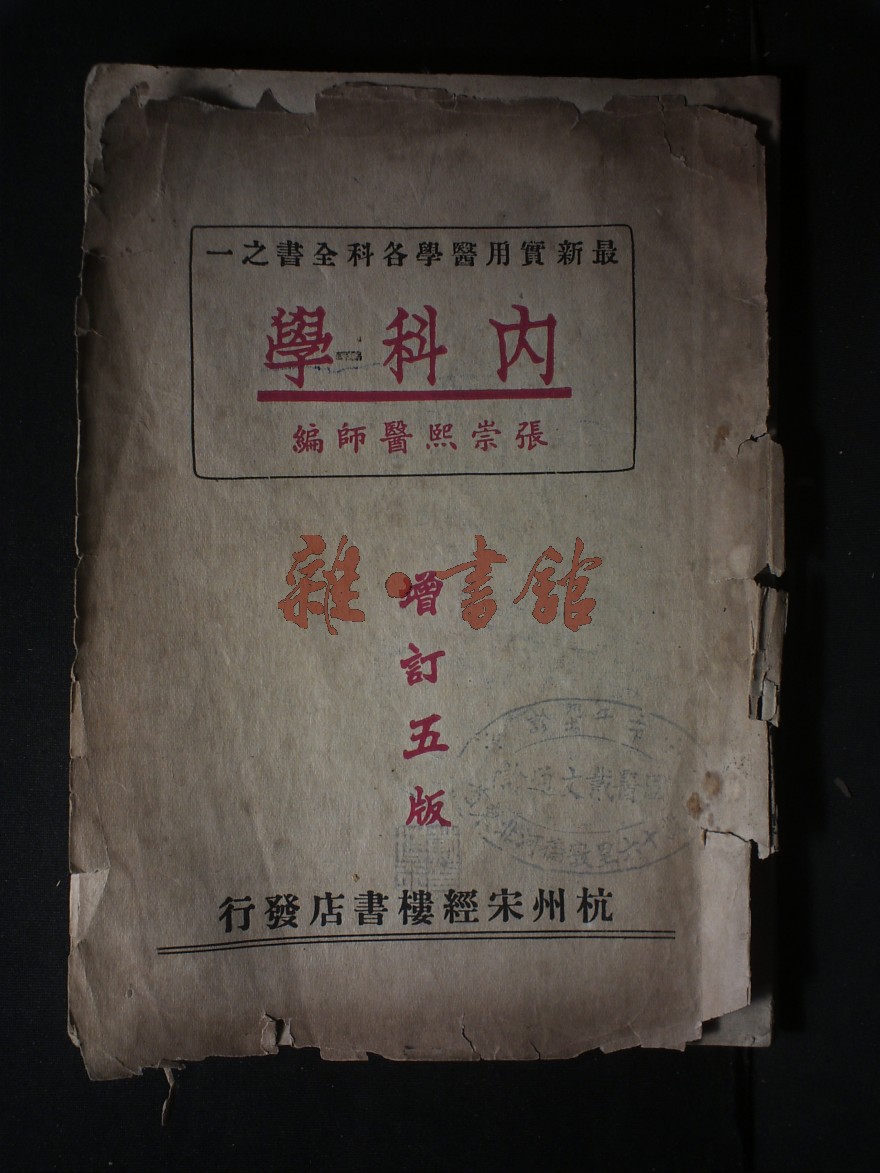 最新實用醫學各科全書之一
內科學
張崇熙醫師編
雜·書館
增訂五版
杭州宋經樓書店發行